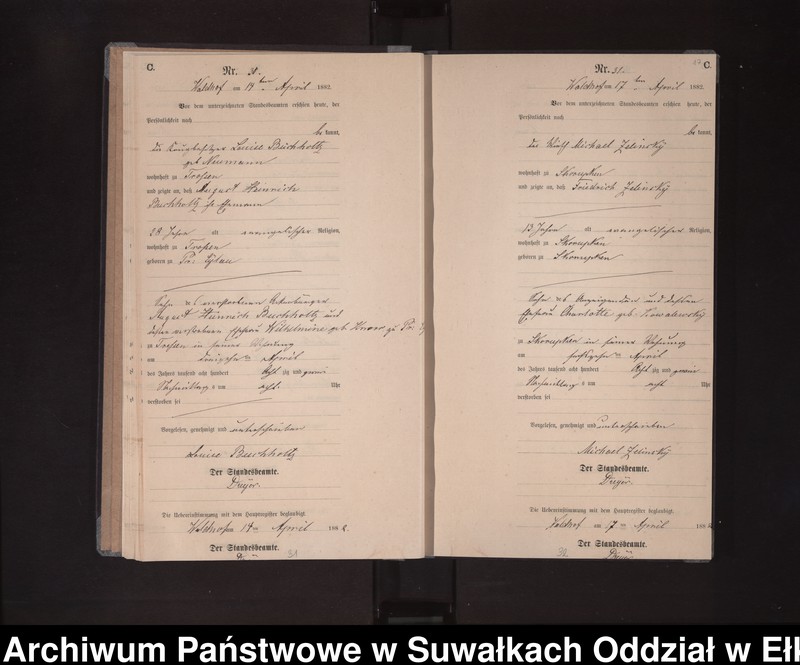 C.
Nr. 30.
Waldhof am 14ten April 1882.
Vor dem unterzeichneten Standesbeamten erschien heute, der
Persönlichkeit nach
bekannt,
die Louise Buchholtz
geb Neumann
wohnhaft zu Troßen
und zeigte an, daß August Heinrich
Buchholtz ihr Ehemann
28 Jahre alt evangelischer Religion,
wohnhaft zu Troßen
geboren zu Pr: Eylau
Sohn des verstorbenen
August Heinrich Buchholtz und
dessen verstorbene Ehefrau Wilhelmine geb Knorr zu Pr: Ey
zu Troßen in seiner Wohnung
am April
des Jahres tausend acht hundert Achtzig und zwei
Nachmittag s um acht Uhr
verstorben sei
Vorgelesen, genehmigt und unterschrieben
Louise Buchholtz
Der Standesbeamte.
Dreyer.
Die Uebereinstimmung mit dem Hauptregister beglaubigt.
Waldhof am 14ten April 1882.
Der Standesbeamte.
31
C.
Nr. 31.
Waldhof am 17ten April 1882.
Vor dem unterzeichneten Standesbeamten erschien heute, der
Persönlichkeit nach
bekannt,
der Wirth Michael Zelinsky
wohnhaft zu Skomentken
und zeigte an, daß Friedrich Zelinsky
13 Jahre alt evangelischer Religion,
wohnhaft zu
geboren zu
Sohn des Anzeigenden und dessen
Ehefrau Charlotte geb Kowalewsky
zu in seiner Wohnung
am April
des Jahres tausend acht hundert Achtzig und zwei
Nachmittag s um acht Uhr
verstorben sei
Vorgelesen, genehmigt und unterschrieben
Michael Zelinsky
Der Standesbeamte.
Dreyer.
Die Uebereinstimmung mit dem Hauptregister beglaubigt.
Waldhof am 17ten April 1882
Der Standesbeamte.
Dreyer
32
Archiwum Państwowe w Suwałkach Oddział w Ełk